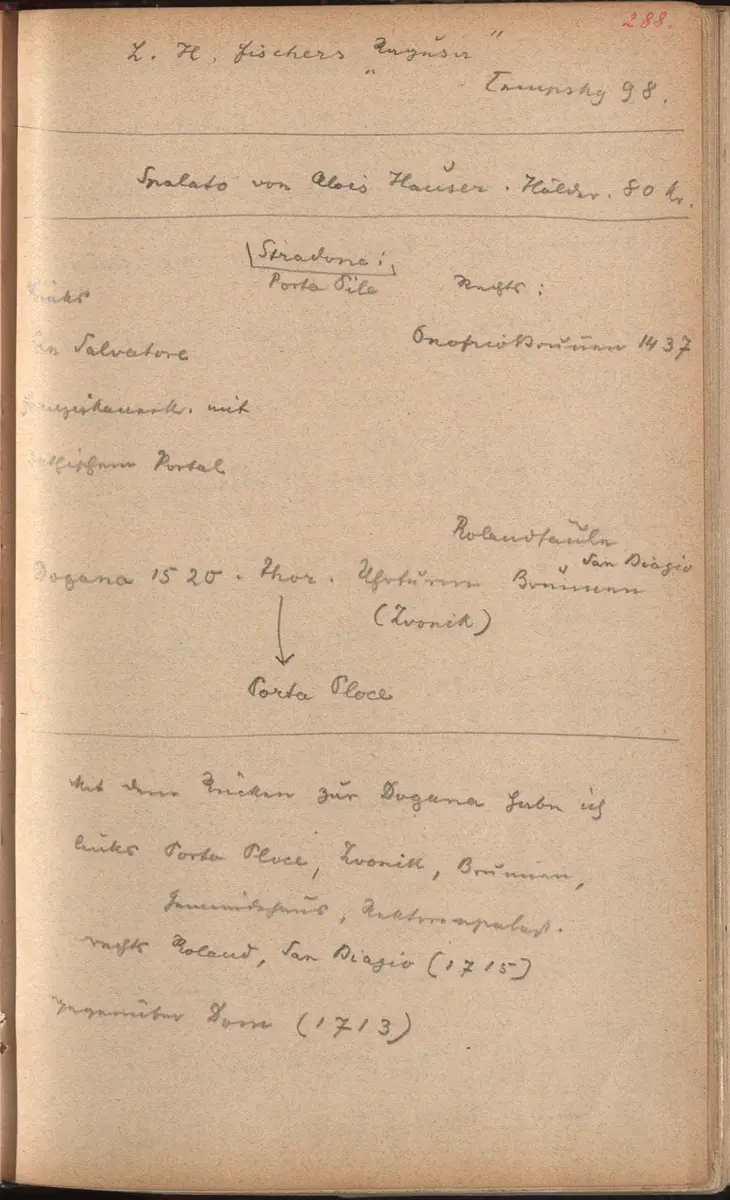 288.
L. H. Fischers „Ragusa"
Tempsky 98.
Spalato von Alois Hauser. Hölder. 80 Kr.
Stradone:
Porta Pile
Links
Rechts:
San Salvatore
Onofrio Brunnen 1437
Franziskanerk. mit
gothischem Portal
Rolandsäule
San Biagio
Dogana 1520. Thor. Uhrturm Brunnen
(Zvonik)
Porta Ploce
Mit dem Rücken zur Dogana habe ich
links Porta Ploce, Zvonik, Brunnen,
Gemeindehaus, Rektorenpalast.
rechts Roland, San Biagio (1715)
gegenüber Dom (1713)